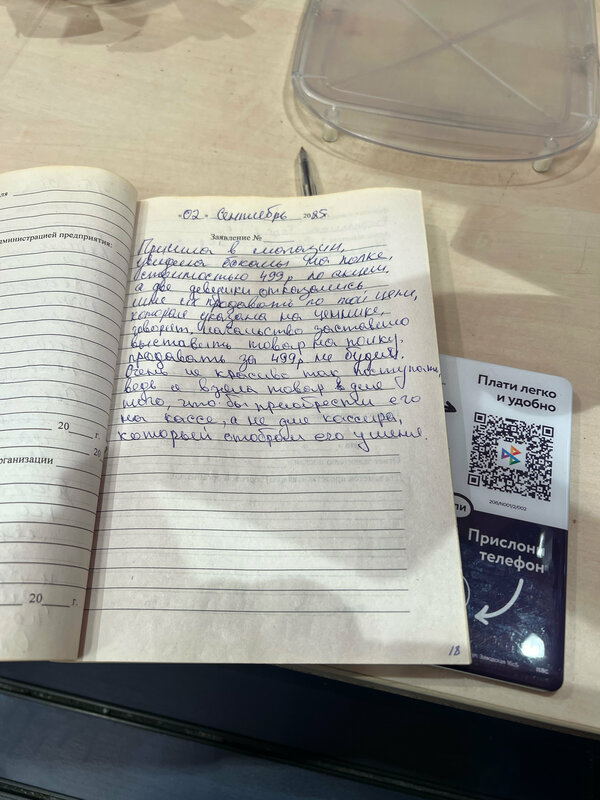 ля
администрацией предприятия:
20 г.
20
организации
20 г.
"02" Сентябрь 2025
Заявление №
Пришла в магазин,
увидела бокалы на полке,
стоимостью 499р по акции.
а две девушки отказались
мне их продавать по той цене,
которая указана на ценнике,
говорят, начальство заставило
выставить товар на полку.
продавать за 499р не будем.
Очень не красиво так поступать,
ведь я взяла товар для
того, что бы приобрести его
на кассе, а не для кассира,
который отобрал его у меня.
18
Плати легко
и удобно
206/N001/2/002
ли
Прислони
телефон